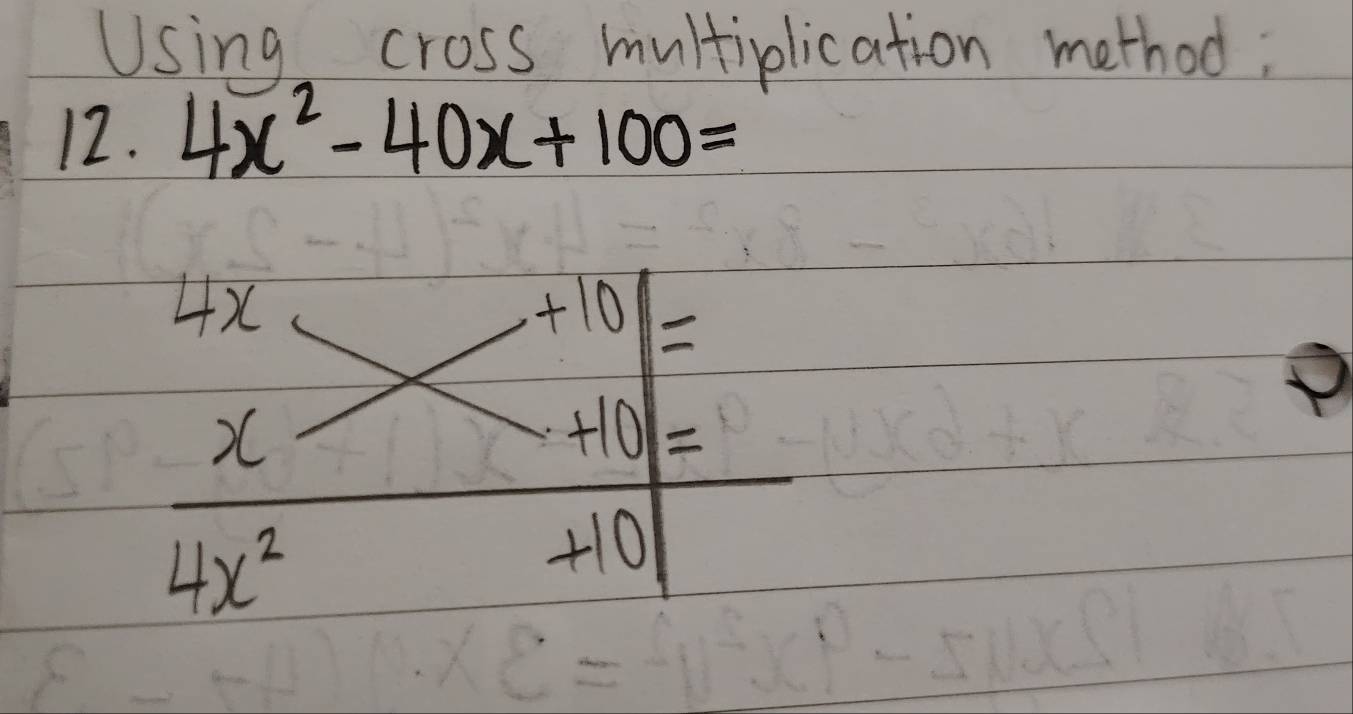 Using cross multiplication method:
12. 4x² - 40x + 100 =
4x +10 =
x +10 =
4x² +10